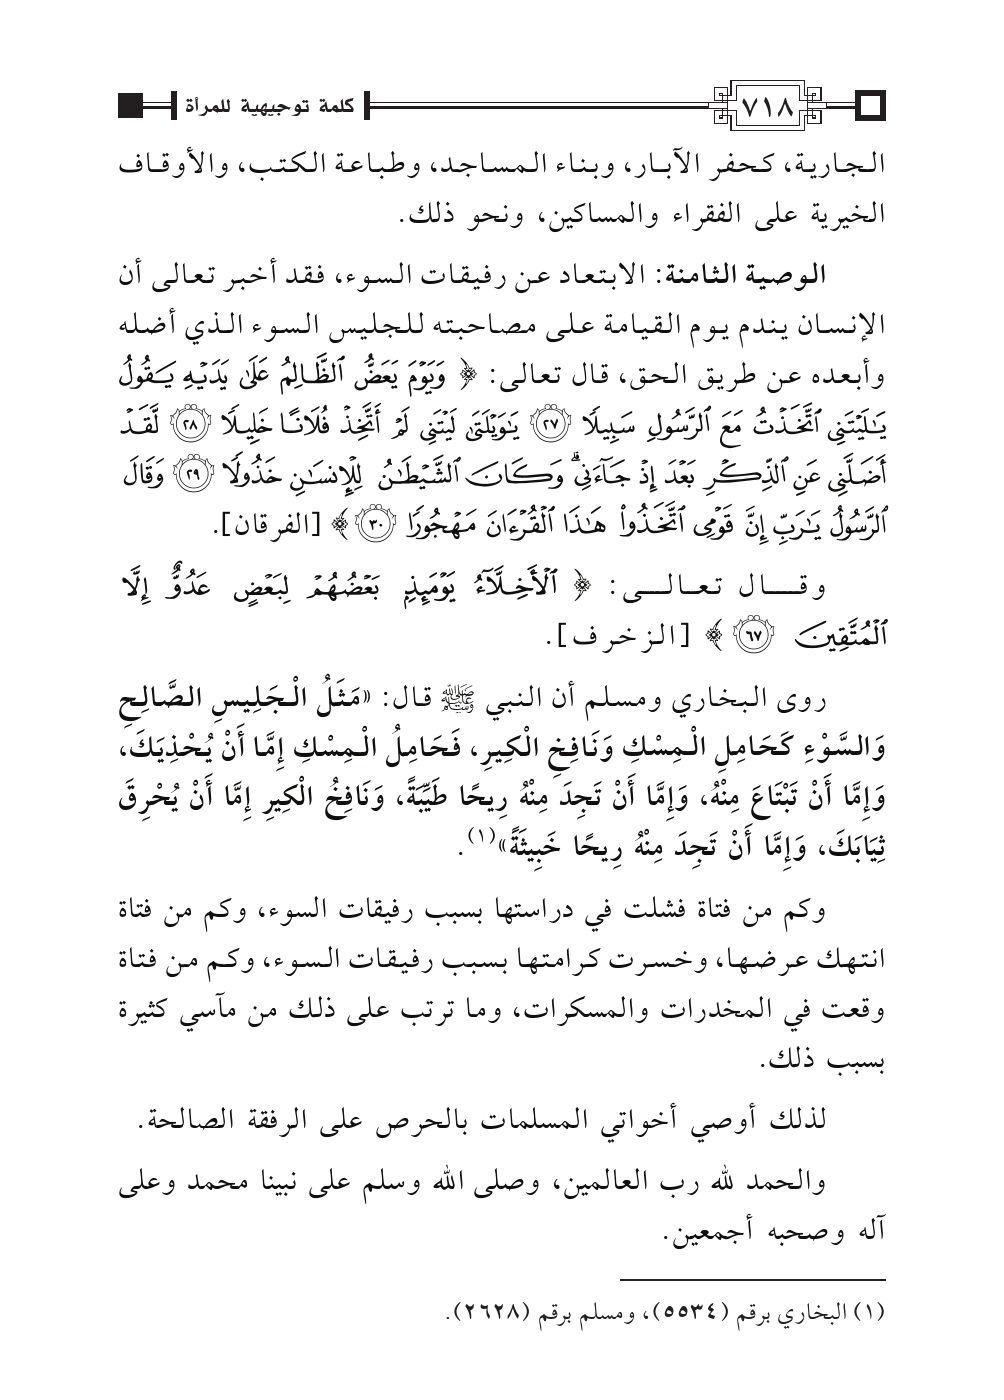 ٧١٨ كلمة توجيهية للمرأة
الجارية، كحفر الآبار، وبناء المساجد، وطباعة الكتب، والأوقاف
الخيرية على الفقراء والمساكين، ونحو ذلك.
الوصية الثامنة: الابتعاد عن رفيقات السوء، فقد أخبر تعالى أن
الإنسان يندم يوم القيامة على مصاحبته للجليس السوء الذي أضله
وأبعده عن طريق الحق، قال تعالى: ﴿ وَيَوْمَ يَعَضُّ ٱلظَّالِمُ عَلَىٰ يَدَيْهِ يَقُولُ
يَٰلَيْتَنِى ٱتَّخَذْتُ مَعَ ٱلرَّسُولِ سَبِيلًا ٢٧ يَٰوَيْلَتَىٰ لَيْتَنِى لَمْ أَتَّخِذْ فُلَانًا خَلِيلًا ٢٨ لَّقَدْ
أَضَلَّنِى عَنِ ٱلذِّكْرِ بَعْدَ إِذْ جَآءَنِىۗ وَكَانَ ٱلشَّيْطَٰنُ لِلْإِنسَٰنِ خَذُولًا ٢٩ وَقَالَ
ٱلرَّسُولُ يَٰرَبِّ إِنَّ قَوْمِى ٱتَّخَذُوا۟ هَٰذَا ٱلْقُرْءَانَ مَهْجُورًا ٣٠ ﴾ [الفرقان].
وقال تعالى: ﴿ ٱلْأَخِلَّآءُ يَوْمَئِذٍۭ بَعْضُهُمْ لِبَعْضٍ عَدُوٌّ إِلَّا
ٱلْمُتَّقِينَ ٦٧ ﴾ [الزخرف].
روى البخاري ومسلم أن النبي ﷺ قال: «مَثَلُ الْجَلِيسِ الصَّالِحِ
وَالسَّوْءِ كَحَامِلِ الْمِسْكِ وَنَافِخِ الْكِيرِ، فَحَامِلُ الْمِسْكِ إِمَّا أَنْ يُحْذِيَكَ،
وَإِمَّا أَنْ تَبْتَاعَ مِنْهُ، وَإِمَّا أَنْ تَجِدَ مِنْهُ رِيحًا طَيِّبَةً، وَنَافِخُ الْكِيرِ إِمَّا أَنْ يُحْرِقَ
ثِيَابَكَ، وَإِمَّا أَنْ تَجِدَ مِنْهُ رِيحًا خَبِيثَةً»(١).
وكم من فتاة فشلت في دراستها بسبب رفيقات السوء، وكم من فتاة
انتهك عرضها، وخسرت كرامتها بسبب رفيقات السوء، وكم من فتاة
وقعت في المخدرات والمسكرات، وما ترتب على ذلك من مآسي كثيرة
بسبب ذلك.
لذلك أوصي أخواتي المسلمات بالحرص على الرفقة الصالحة.
والحمد لله رب العالمين، وصلى الله وسلم على نبينا محمد وعلى
آله وصحبه أجمعين.
(١) البخاري برقم (٥٥٣٤)، ومسلم برقم (٢٦٢٨).